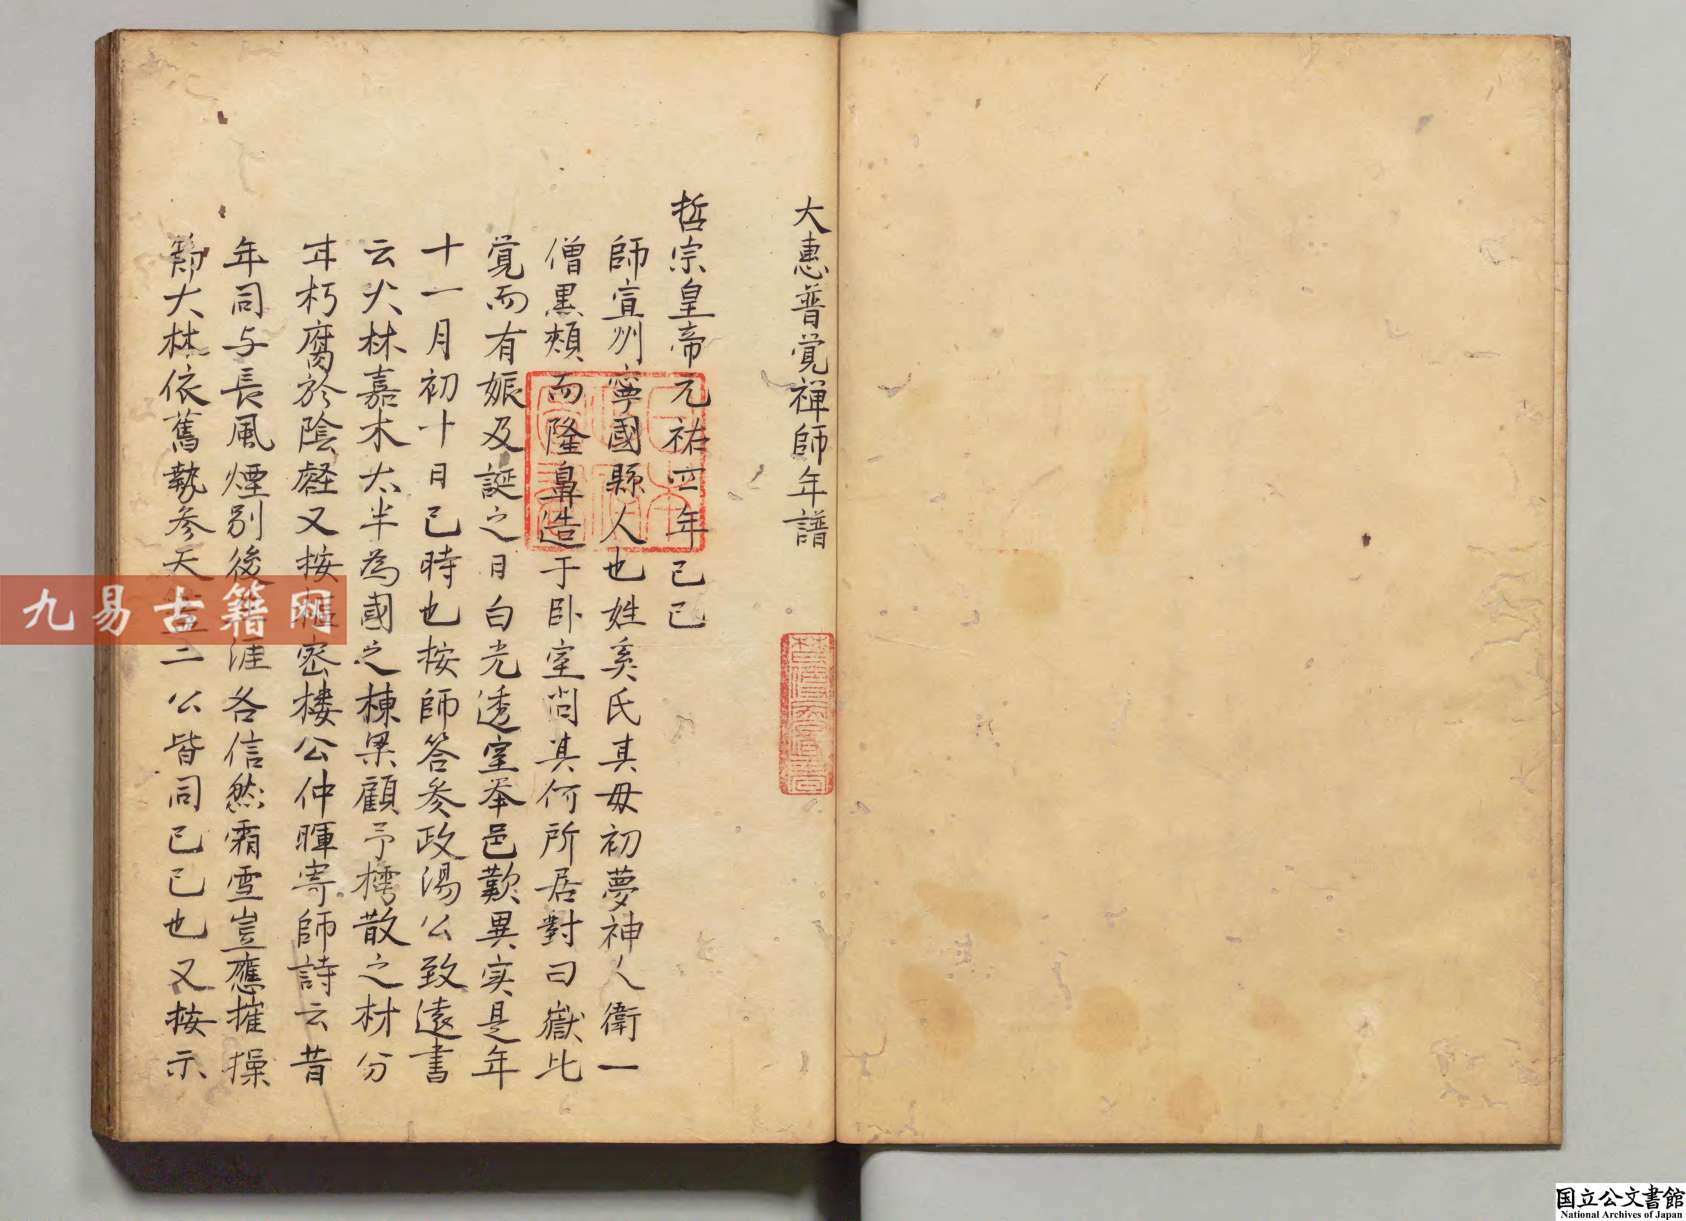 大惠普覚禅師年譜
哲宗皇帝元祐四年己巳
師宣州寧國縣人也姓奚氏其母初夢神人衛一
僧黒頬而隆鼻造于卧室問其何所居對曰嶽北
覚而有娠及誕之日白光透室挙邑歎異実是年
十一月初十日巳時也按師答参政湯公致遠書
云大林嘉木太半為國之棟梁顧予樗散之材分
甘朽腐於陰壑又按樞密楼公仲暉寄師詩云昔
年同与長風煙別後涯各信然霜雪豈應摧操
節大林依舊勢参天二公皆同己巳也又按示
九易古籍网
国立公文書館
National Archives of Japan